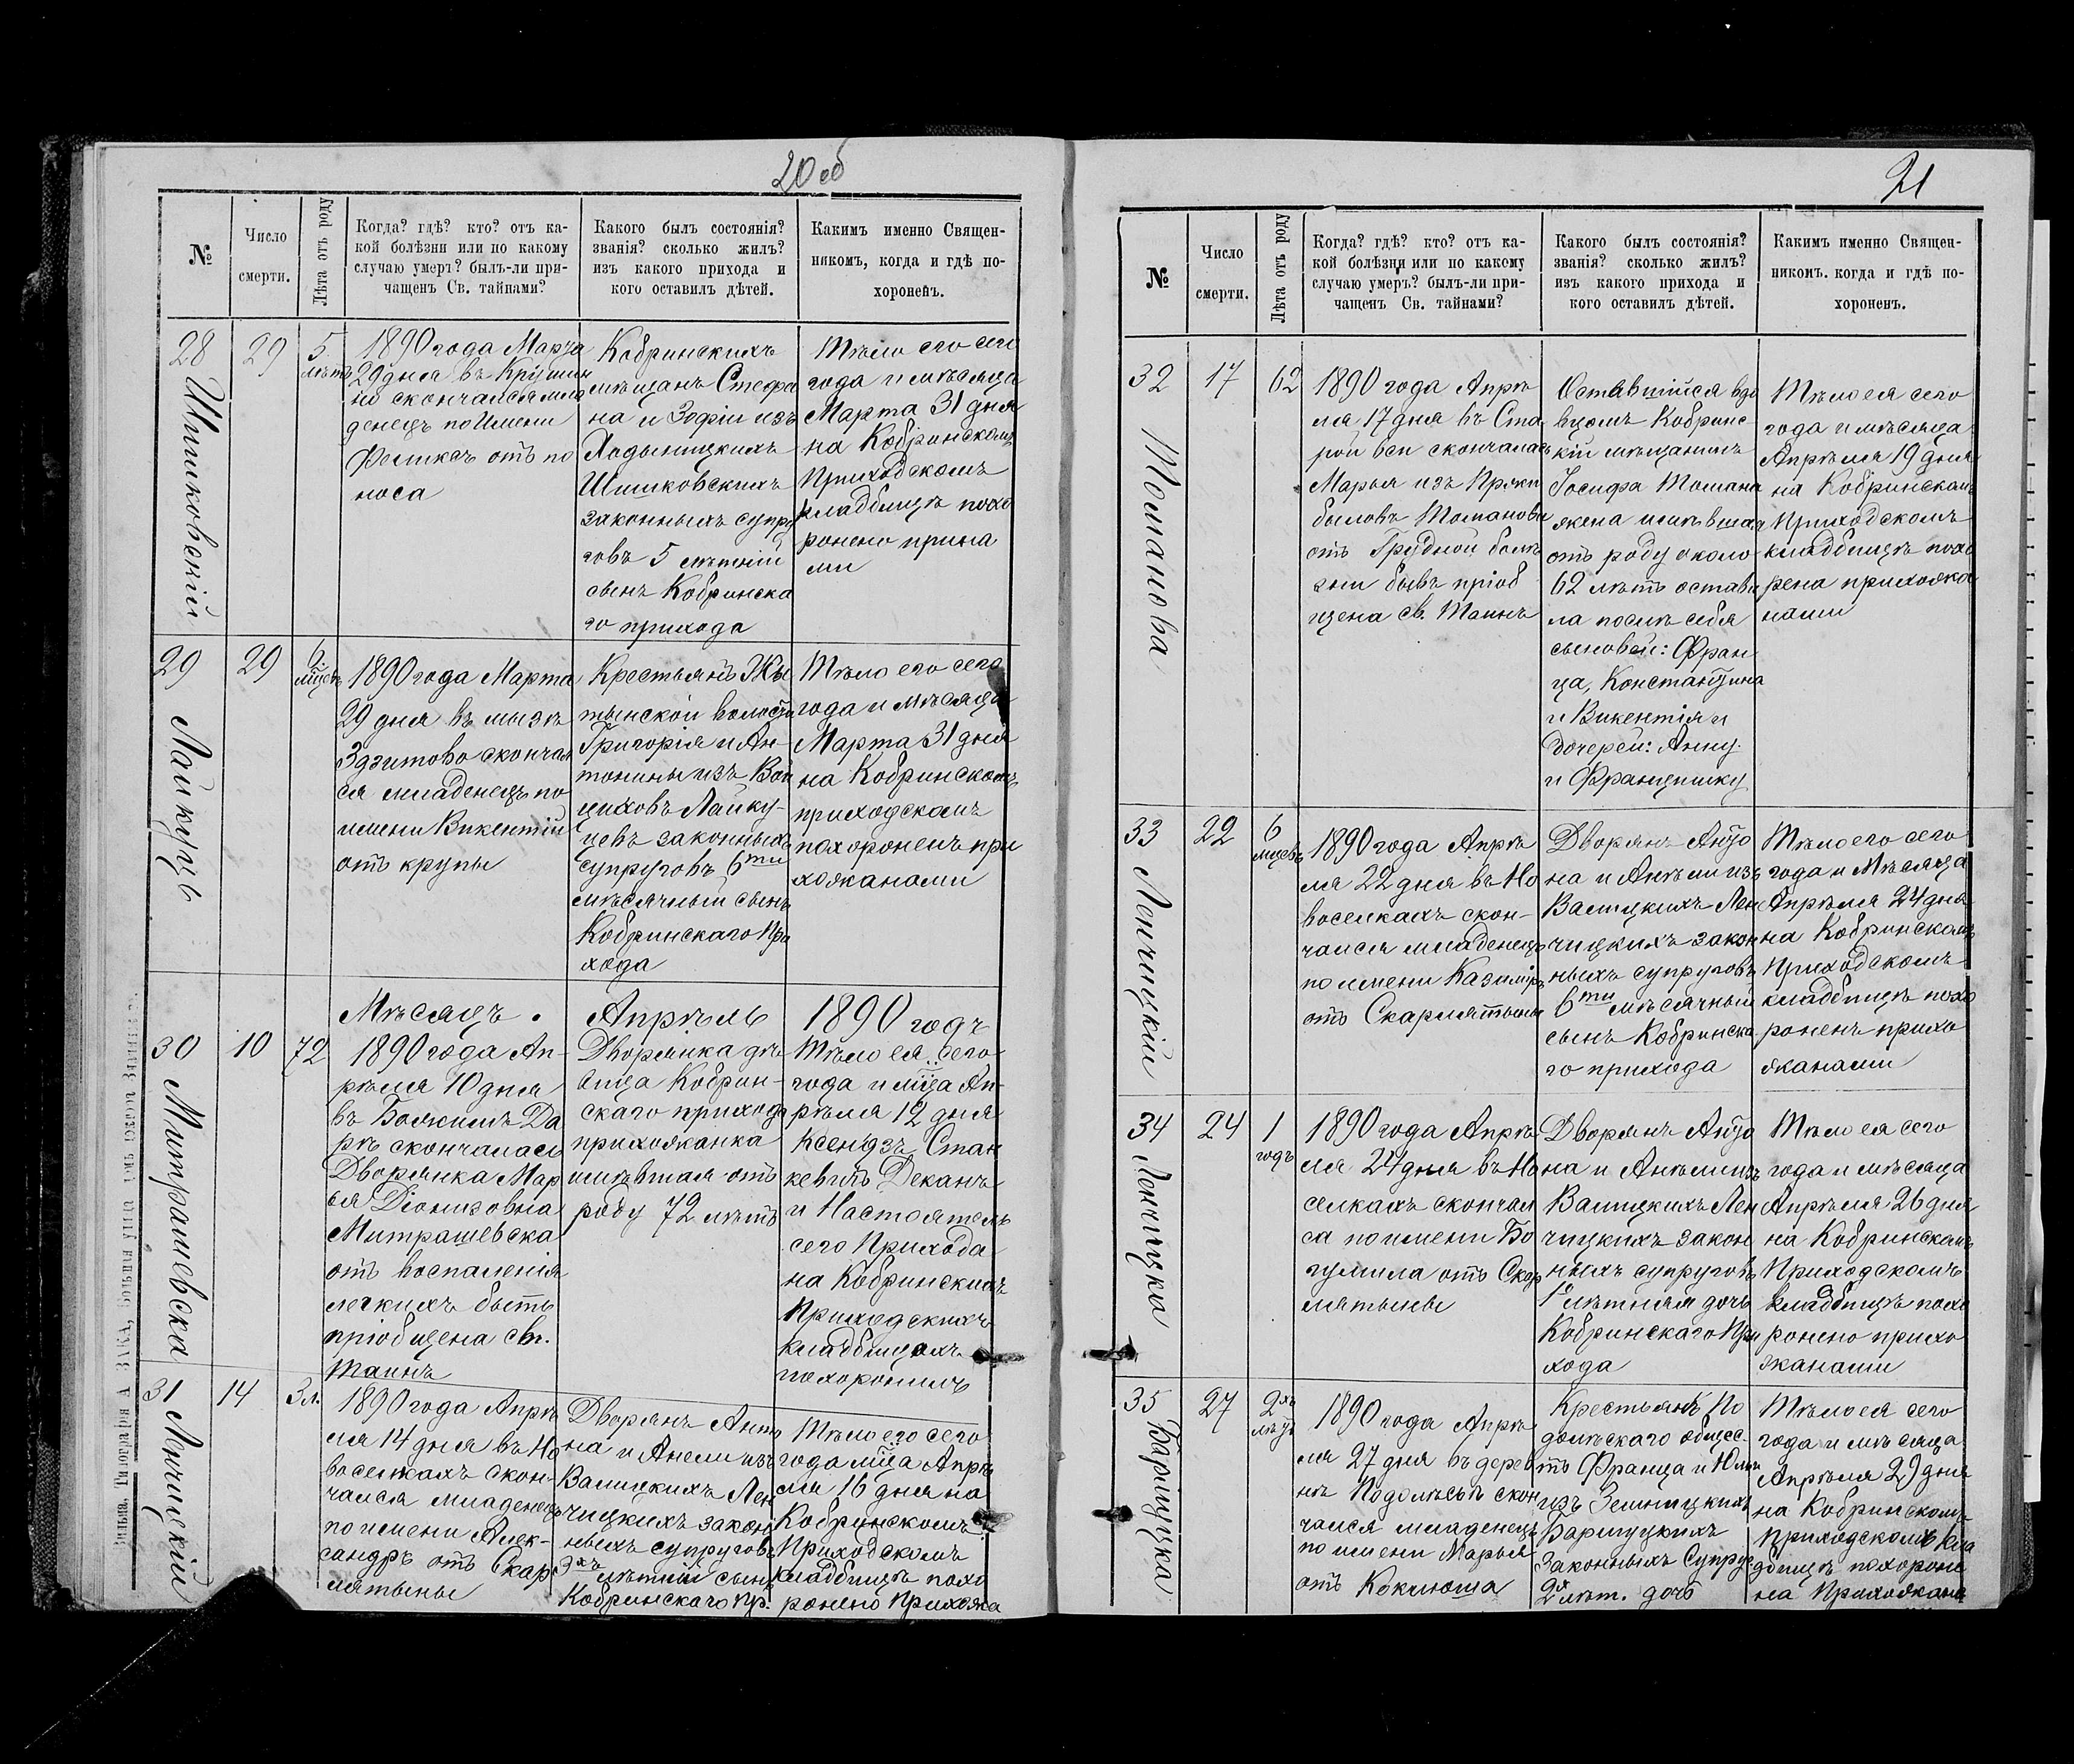 20 об
№
Число
смерти.
Лѣта отъ роду
Когда? гдѣ? кто? отъ ка-
кой болѣзни или по какому
случаю умеръ? былъ-ли при-
чащенъ Св. тайнами?
Какого былъ состоянія?
званія? сколько жилъ?
изъ какого прихода и
кого оставилъ дѣтей.
Какимъ именно Священ-
никомъ, когда и гдѣ по-
хороненъ.
28
Шишковскій
29
5
лѣтъ
1890 года Марта
29 дня въ Крушин
ни скончался мла
денецъ по Имени
Феликсъ отъ по
носа
Кобринскихъ
мѣщанъ Стефа
на и Зофіи изъ
Ходыницкихъ
Шишковскихъ
законныхъ супру
говъ 5 лѣтній
сынъ Кобринска
го прихода
Тѣло его сего
года и мѣсяца
Марта 31 дня
на Кобринскомъ
Приходскомъ
кладбищѣ похо
ронено прих
ми
29
Лайкуцъ
29
6
мцевъ
1890 года Марта
29 дня въ мызѣ
Здзитово скончал
ся младенецъ по
имени Викентій
отъ крупы
Крестьянъ
тынской волости
Григорія и Ан-
тонины изъ Вой
циховъ Лайку-
цевъ законныхъ
супруговъ 6ти
мѣсячный сынъ
Кобринскаго При
хода
Тѣло его сего
года и мѣсяца
Марта 31 дня
на Кобринскомъ
приходскомъ
похороненъ при
хожанами
Мѣсяцъ. Апрѣль 1890 годъ
30
Митрашевска
10
72
1890 года Ап-
рѣля 10 дня
въ Божимъ Да
рѣ скончалась
Дворянка Мар
ья Діонизовна
Митрашевска
отъ воспаленія
легкихъ бывъ
пріобщена св.
таинъ
Дворянка дѣ
вица Кобрин-
скаго прихода
прихожанка
имѣвшая отъ
роду 72 лѣтъ
Тѣло ея сего
года и мца Ап-
рѣля 12 дня
Ксендзъ Стан
кевичъ Деканъ
и Настоятель
сего Прихода
на Кобринскихъ
Приходскихъ
кладбищахъ
похоронилъ
31
Ленчицкій
14
3 л.
1890 года Апрѣ
ля 14 дня въ Но
воселкахъ скон-
чался младенецъ
по имени Алек-
сандръ отъ Скар
лятыны
Дворянъ Анто
на и Анели изъ
Валицкихъ Лен
чицкихъ закон
ныхъ супруговъ
3хъ лѣтній сынъ
Кобринскаго пр.
Тѣло его сего
года мца Апрѣ
ля 16 дня на
Кобринскомъ
Приходскомъ
кладбищѣ похо
ронено Прихожа
Вильна. Типографія А
21
№
Число
смерти.
Лѣта отъ роду
Когда? гдѣ? кто? отъ ка-
кой болѣзни или по какому
случаю умеръ? былъ-ли при-
чащенъ Св. тайнами?
Какого былъ состоянія?
званія? сколько жилъ?
изъ какого прихода и
кого оставилъ дѣтей.
Какимъ именно Священ-
никомъ. когда и гдѣ по-
хороненъ.
32
Томанова
17
62
1890 года Апрѣ
ля 17 дня въ Ста
рой вси скончалась
Марья изъ Пржи
быловъ Томанова
отъ Грудной болѣ
зни бывъ пріоб
щена св. Таинъ
Оставшійся вдо
вцомъ Кобринс-
кій мѣщанинъ
Іосифа Томана
жена имѣвшая
отъ роду около
62 лѣтъ остави
ла послѣ себя
сыновей: Фран
ца, Константина
и Викентія и
дочерей: Анну
и Францишку
Тѣло ея сего
года и мѣсяца
Апрѣля 19 дня
на Кобринскомъ
Приходскомъ
кладбищѣ похо
рена прихожа
нами
33
Ленчицкій
22
6
мцевъ
1890 года Апрѣ
ля 22 дня въ Но
воселкахъ скон-
чался младенецъ
по имени Казимиръ
отъ Скарлятыны
Дворянъ Анто
на и Анѣли изъ
Валицкихъ Лен
чицкихъ закон
ныхъ супруговъ
6ти мѣсячный
сынъ Кобринска
го прихода
Тѣло его сего
года и Мѣсяца
Апрѣля 24 дня
на Кобринскомъ
Приходскомъ
кладбищѣ похо
роненъ прихо
жанами
34
Ленчицка
24
1
годъ
1890 года Апрѣ-
ля 24 дня въ Но
селкахъ скончал
са по имени Бо
гумила отъ Скар
лятыны
Дворянъ Анто
на и Анѣли изъ
Валицкихъ Лен
чицкихъ закон
ныхъ супруговъ
1 лѣтняя дочь
Кобринскаго При
хода
Тѣло ея сего
года и мѣсяца
Апрѣля 26 дня
на Кобринскомъ
Приходскомъ
кладбищѣ похо
ронено прихо
жанами
35
Барицка
27
2хъ
лѣтъ
1890 года Апрѣ
ля 27 дня въ дерев
нѣ Подолѣсьѣ скон
чался младенецъ
по имени Марья
отъ Коклюша
Крестьянъ По
долѣскаго общес-
тъ Франца и Юлии
изъ Зелницкихъ
Законныхъ Супруг
2х лѣт. дочь
Тѣло ея сего
года и мѣсяца
Апрѣля 29 дня
на Кобринскомъ
приходскомъ кла
дбищѣ похороне
на Прихожана